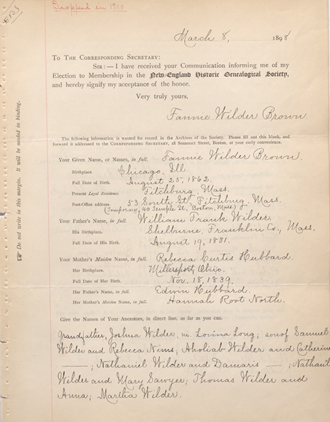 Dropped in 1900
March 8, 1898
TO THE CORRESPONDING SECRETARY:
SIR:—I have received your Communication informing me of my
Election to Membership in the New-England Historic Genealogical Society,
and hereby signify my acceptance of the honor.
Very truly yours,
Fannie Wilder Brown
The following information is wanted for record in the Archives of the Society. Please fill out this blank, and
forward it addressed to the CORRESPONDING SECRETARY, 18 Somerset Street, Boston, at your early convenience.
Your Given Name, or Names, in full. Fannie Wilder Brown.
Birthplace Chicago, Ill.
Full Date of Birth. August 25, 1862.
Present Legal Residence Fitchburg, Mass.
Post-Office address 53 South St. Fitchburg, Mass.
(Temporary, 40 Temple St. Boston, Mass.)
Your Father's Name, in full. William Frank Wilder
His Birthplace. Shelburne, Franklin Co., Mass.
Full Date of His Birth. August 19, 1831.
Your Mother's Maiden Name, in full. Rebecca Curtis Hubbard
Her Birthplace. Millersport, Ohio.
Full Date of Her Birth. Nov. 18, 1839
Her Father's Name, in full. Edwin Hubbard
Her Mother's Maiden Name, in full. Hannah Root North.
Give the Names of Your Ancestors, in direct line, as far as you can.
Grandfather, Joshua Wilder, m. Lovina Long; son of Samuel
Wilder and Rebecca Nims; Aholiab Wilder and Catherine
—; Nathaniel Wilder and Damaris —; Nathaniel
Wilder and Mary Sawyer; Thomas Wilder and
Anna; Martha Wilder.
Do not write in this margin. It will be needed in binding.